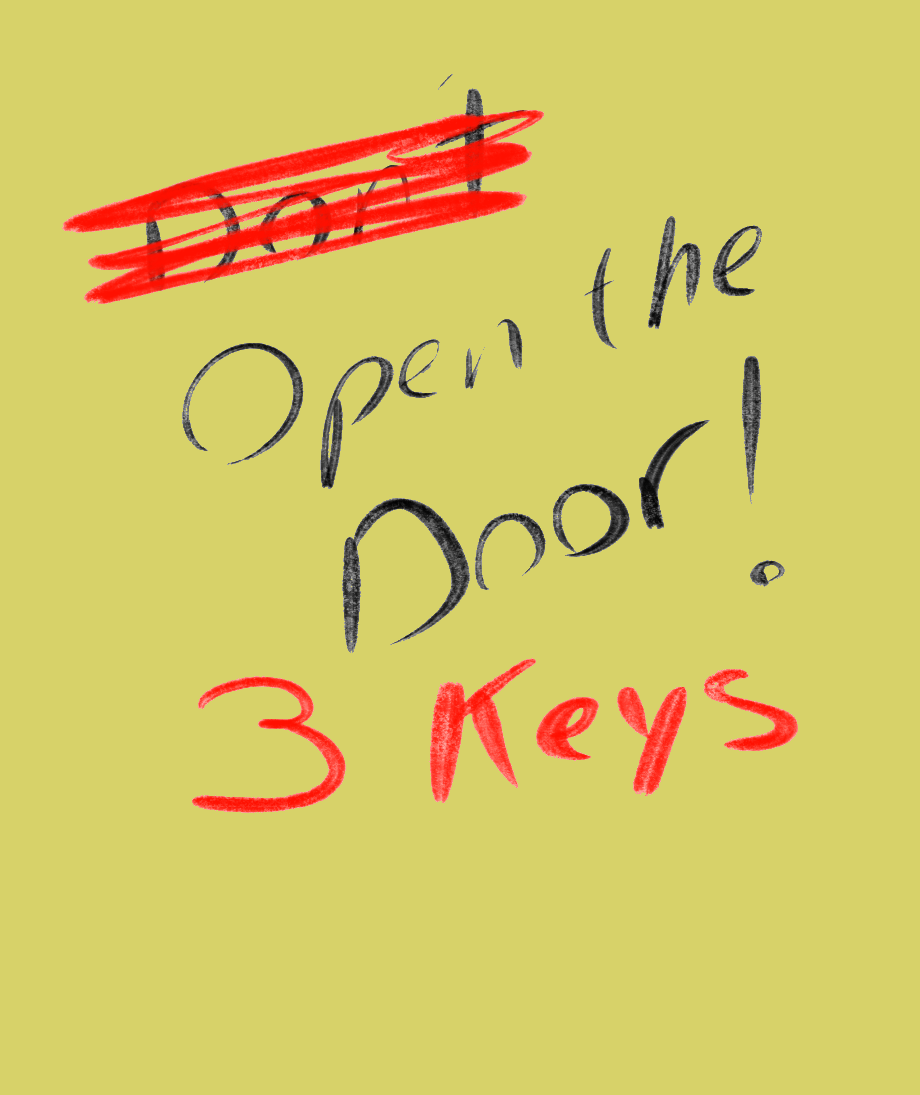 Don't
Open the
Door!
3 Keys